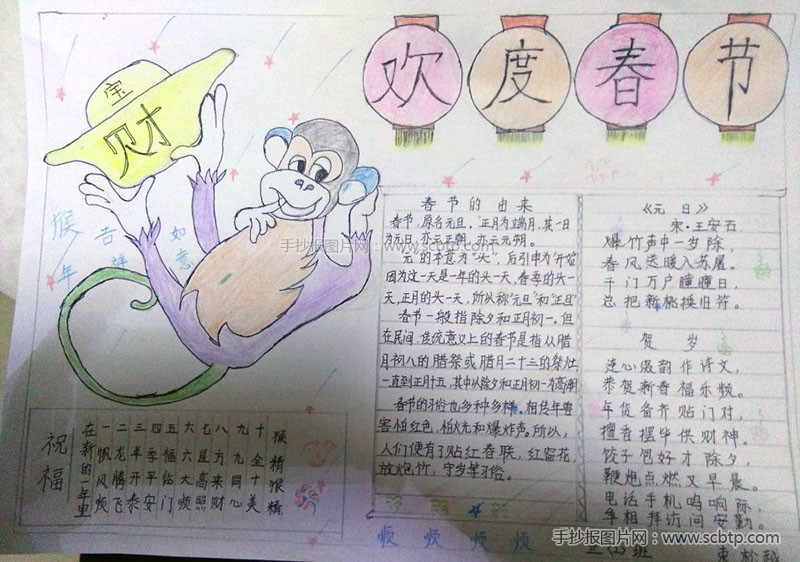 欢度春节
宝
财
猴吉如
年祥意
手抄报图片网:www.scbtp.com
春节的由来
春节,原名元旦,正月为端月,其一日
为元日,亦云正朝,亦云元朔。
元的本意为“头”,后引申为“开始”
因为这一天是一年的头一天,春季的头一
天,正月的头一天,所以称“元旦”和“正旦”
春节一般指除夕和正月初一。但
在民间,传统意义上的春节是指从腊
月初八的腊祭或腊月二十三的祭灶,
一直到正月十五,其中从除夕和正月初一为高潮
春节的习俗也多种多样。相传年兽
害怕红色,怕火光和爆炸声。所以,
人们便有了贴红春联,红窗花,
放炮竹,守岁等习俗。
《元日》
宋·王安石
爆竹声中一岁除,
春风送暖入苏屠。
千门万户曈曈日,
总把新桃换旧符。
贺岁
连心级韵作诗文,
恭贺新春福乐频。
年货备齐贴门对,
檀香摆毕供财神。
饺子包好才除夕,
鞭炮点燃又早晨。
电话手机呜响际,
争相拜访问安勤。
祝福
在新的一年里
一帆风顺
二龙腾飞
三羊开泰
四季平安
五福临门
六六大顺
七星高照
八方来财
九九同心
十全十美
猴精猴精
烦 烦 烦 烦
三(2)班
手抄报图片网:www.scbtp.com